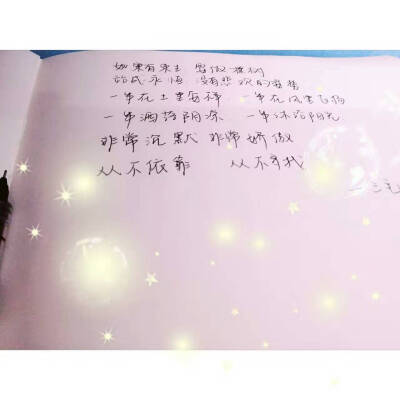 如果有来生 要做一棵树
站成永恒 没有悲欢的姿势
一半在土里安详 一半在风里飞扬
一半洒落阴凉 一半沐浴阳光
非常沉默 非常骄傲
从不依靠 从不寻找
——三毛